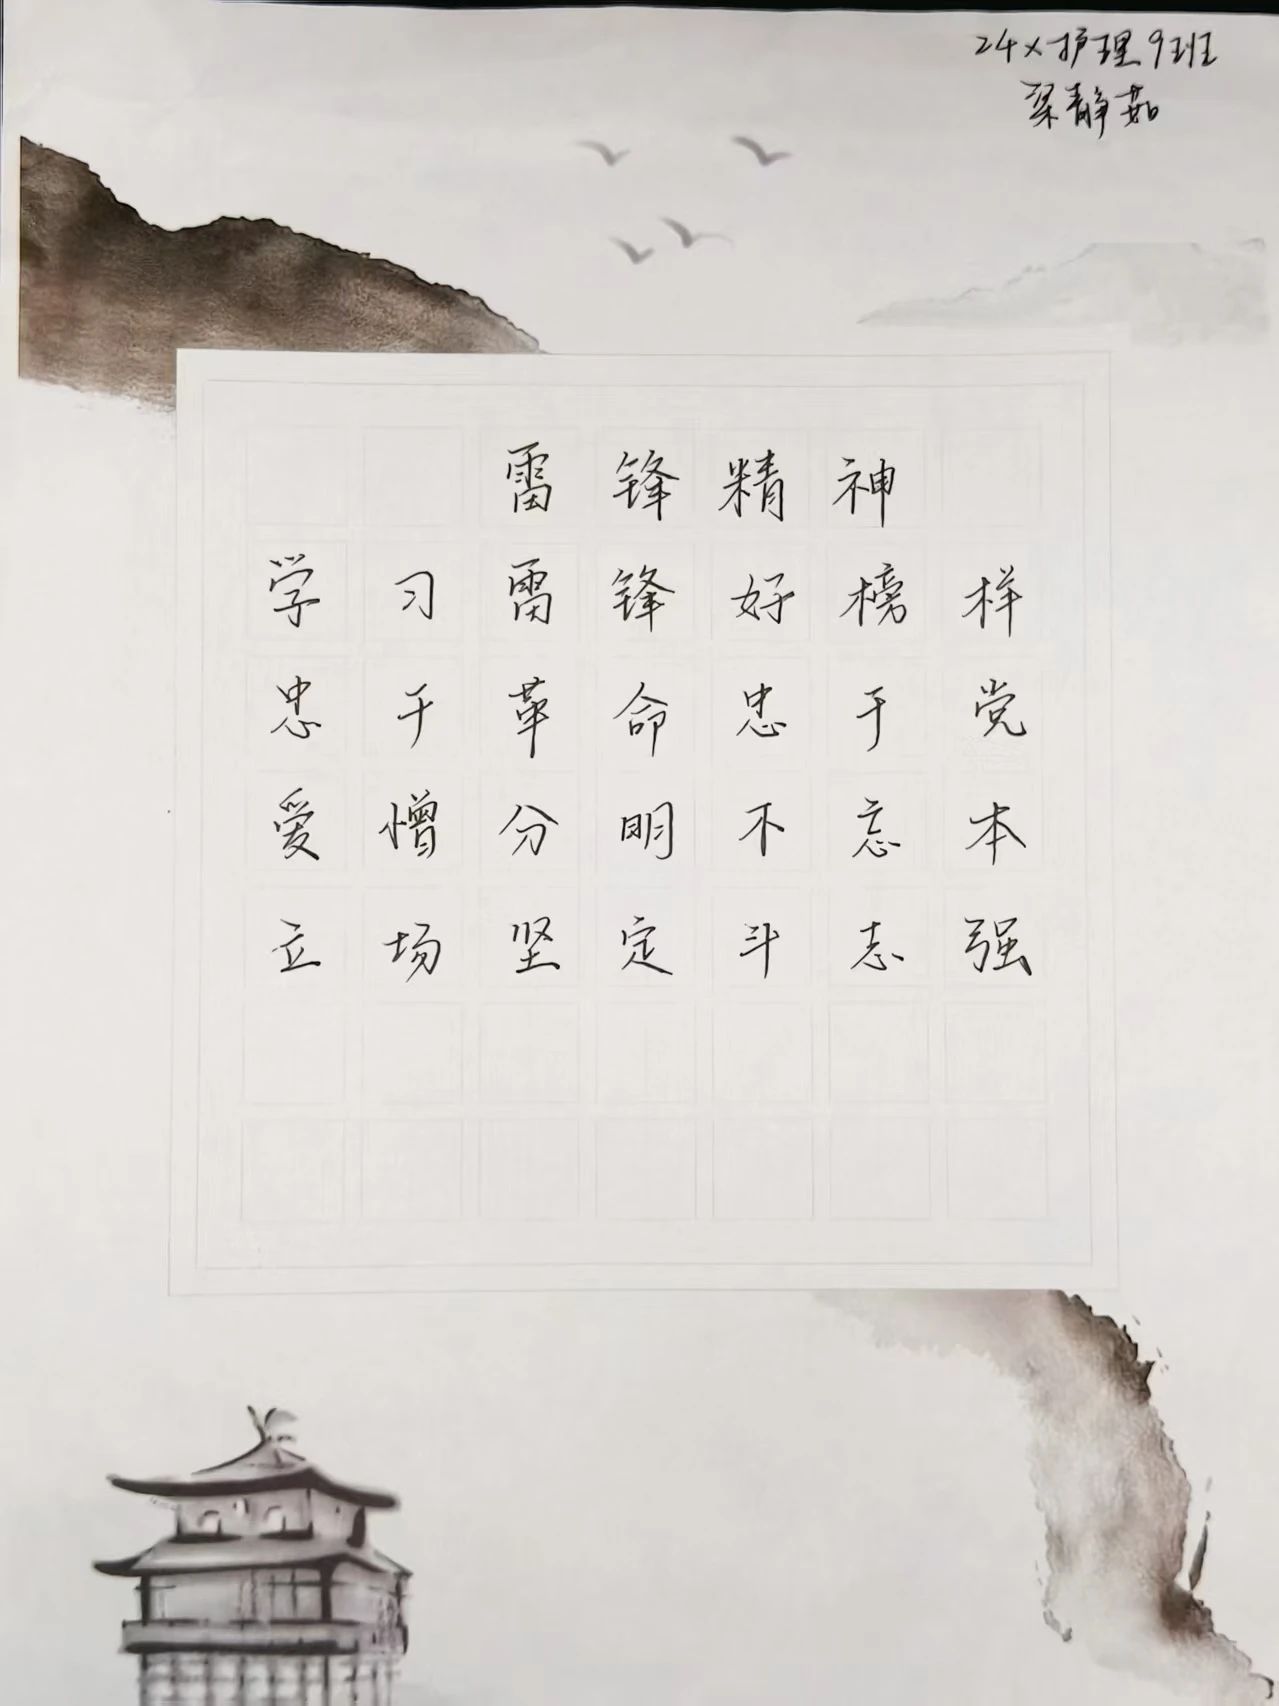 24x护理9班
梁静茹
雷锋精神
学习雷锋好榜样
忠于革命忠于党
爱憎分明不忘本
立场坚定斗志强